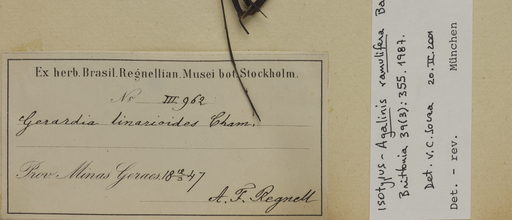 Ex herb. Brasil. Regnellian. Musei bot. Stockholm.
No III 962
Gerardia linarioides Cham.
Prov. Minas Geraes, 18 12/5 47
A. F. Regnell
Isotypus - Agalinis ramulifera Ba
Brittonia 39(3): 355. 1987.
Det. V. C. Souza 20. II. 2001
Det. - rev. München